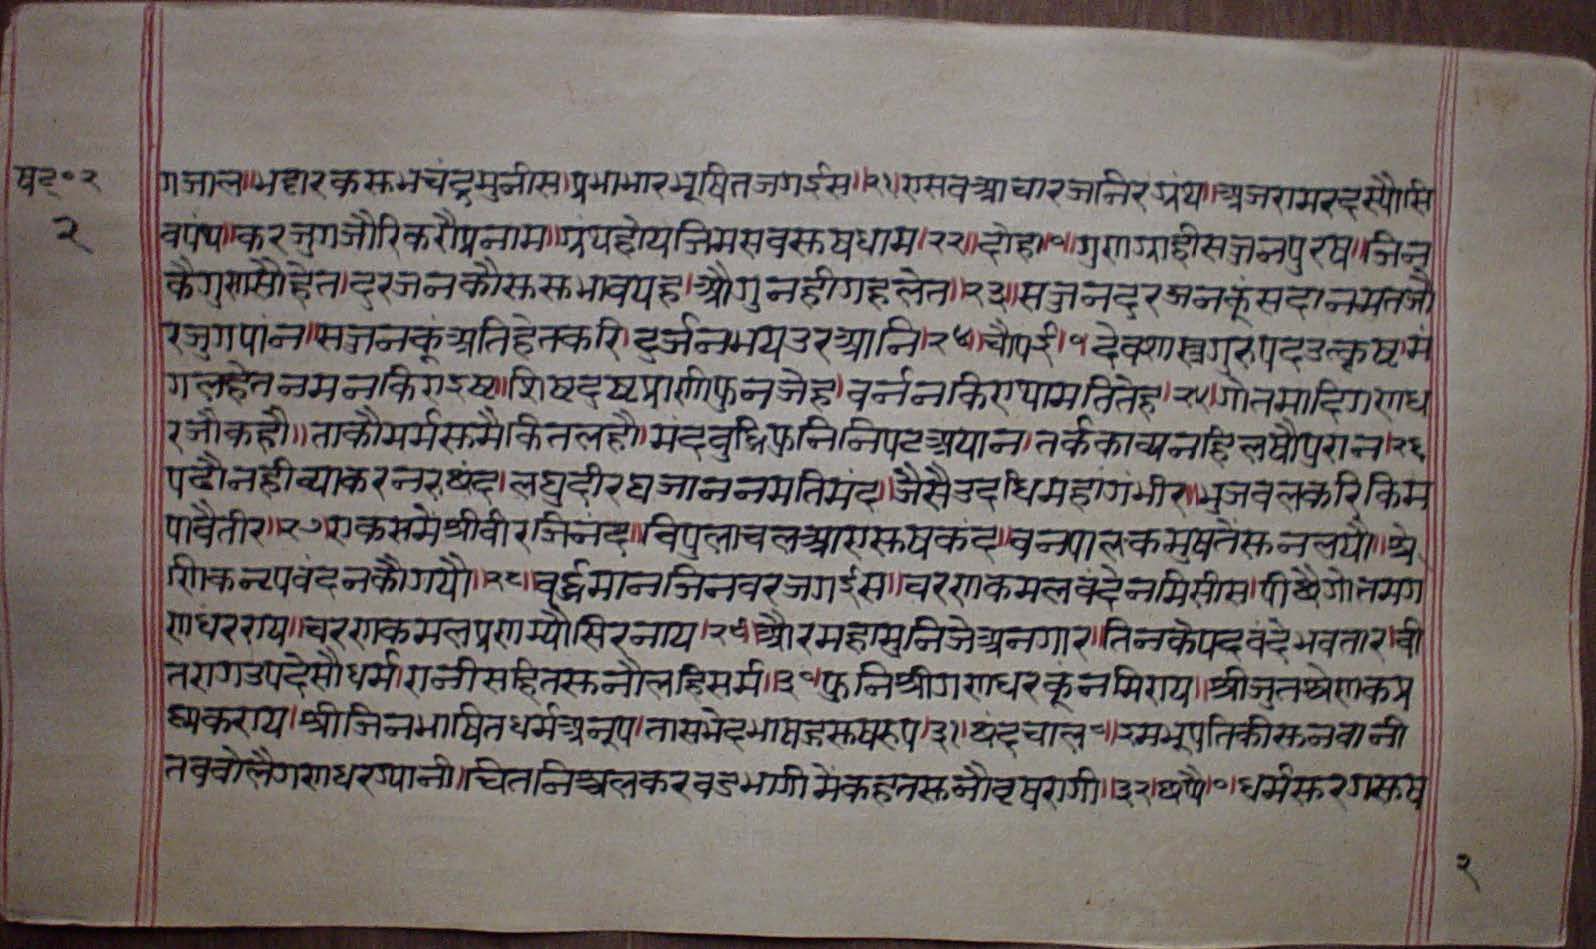 षट्॰२
२
गजाल॥भट्टारकसुभचंद्रमुनीस।प्रभाभारभूषितजगईस॥२१॥एसवआचारजनिरग्रंथ॥अजरामरदस्यौसि
वपंथ॥करजुगजौरिकरौप्रनाम॥ग्रंथहोयजिमसवसुषधाम।२२॥दोहा॰॥गुणग्राहीसज्जनपुरष॥जिन
कैगुणसौहेत।दुरजनकौसुसभावयह।औगुनहीगहलेत॥२३॥सज्जनदुरजनकूंसदानमतजौ
रजुगपांन॥सज्जनकूंअतिहेतकरि।दुर्जनभयउरआनि॥२४॥चौपई।१देवशास्त्रगुरुपदउत्कृष्ट॥मं
गलहेतनमनकिएइष्ट॥शिष्टदुष्टप्राणीफुनजेह।वर्ननकिएयामतितेह।२५॥गौतमादिगणध
रजौकहौ॥ताकौमर्मसुमैकितलहौ।मंदवुद्धिफुनिनिपटअयान।तर्ककाव्यनहिलषौपुरान।२६
पढौनहीव्याकरनरुछंद।लघुदीरघजाननमतिमंद।जैसैउदधिमहागंभीर॥भुजवलकरिकिम
पावैतीर॥२७॥एकसमेश्रीवीरजिनंद॥विपुलाचलआएसुषकंद॥वनपालकमुषतेंसुनलयौ॥श्रे
णिकनृपवंदनकौगयौ॥२८॥वर्द्धमानजिनवरजगईस॥चरणकमलवंदेनमिसीस।पीछैगौतमग
णधरराय॥चरणकमलप्रणम्यौसिरनाय।२९॥औरमहामुनिजेअनगार।तिनकेपदवंदेभवतार।वी
तरागउपदेसौधर्म।रानीसहितसुनौलहिसर्म॥३०॥फुनिश्रीगणधरकूंनमिराय॥श्रीजुतश्रेणकप्र
ष्णकराय।श्रीजिनभाषितधर्मअनूप।तासभेदभाषजसुषरुप।३१॥छंदचाल॰॥इमभूपतिकीसुनवानी
तववोलैगणधरग्यानी॥चितनिश्चलकरवडभागीमेंकहतसुनौवृषरागी॥३२॥छप्पै॰॥धर्मसुरगसुष
२